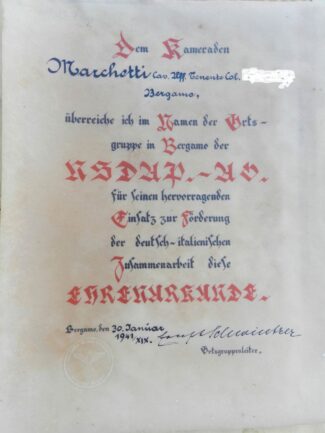 Dem Kameraden
Marchetti Cav. Uff. Tenente Col.
Bergamo,
überreiche ich im Namen der Orts-
gruppe in Bergamo der
NSDAP.-AO.
für seinen hervorragenden
Einsatz zur Förderung
der deutsch-italienischen
Zusammenarbeit diese
EHRENURKUNDE.
Bergamo, den 30. Januar
1941 XIX.
Ortsgruppenleiter.